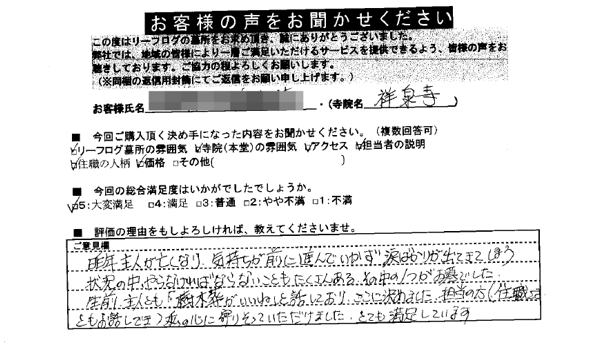 お客様の声をお聞かせください
この度はリーフログの墓所をお求め頂き、誠にありがとうございました。
弊社では、地域の皆様により一層ご満足いただけるサービスを提供できるよう、皆様の声をお
聴きしております。ご協力の程よろしくお願いします。
(※同梱の返信用封筒にてご返信をお願い申し上げます。)
お客様氏名 ・(寺院名 祥泉寺 )
■ 今回ご購入頂く決め手になった内容をお聞かせください。(複数回答可)
☑リーフログ墓所の雰囲気 ☑寺院(本堂)の雰囲気 ☑アクセス ☑担当者の説明
☑住職の人柄 ☑価格 □その他( )
■ 今回の総合満足度はいかがでしたでしょうか。
☑5:大変満足 □4:満足 □3:普通 □2:やや不満 □1:不満
■ 評価の理由をもしよろしければ、教えてくださいませ。
ご意見欄
昨年主人が亡くなり、気持ちが前に進んでいかず涙ばかりが出てきてしまう
状況の中、やらなければならないこともたくさんある、その中の1つがお墓でした。
生前、主人とも「樹木葬がいいね」と話しており、ここに決めました。担当の方(住職さま
ともお話しでき)私の心に寄りそっていただけました。とても満足しています